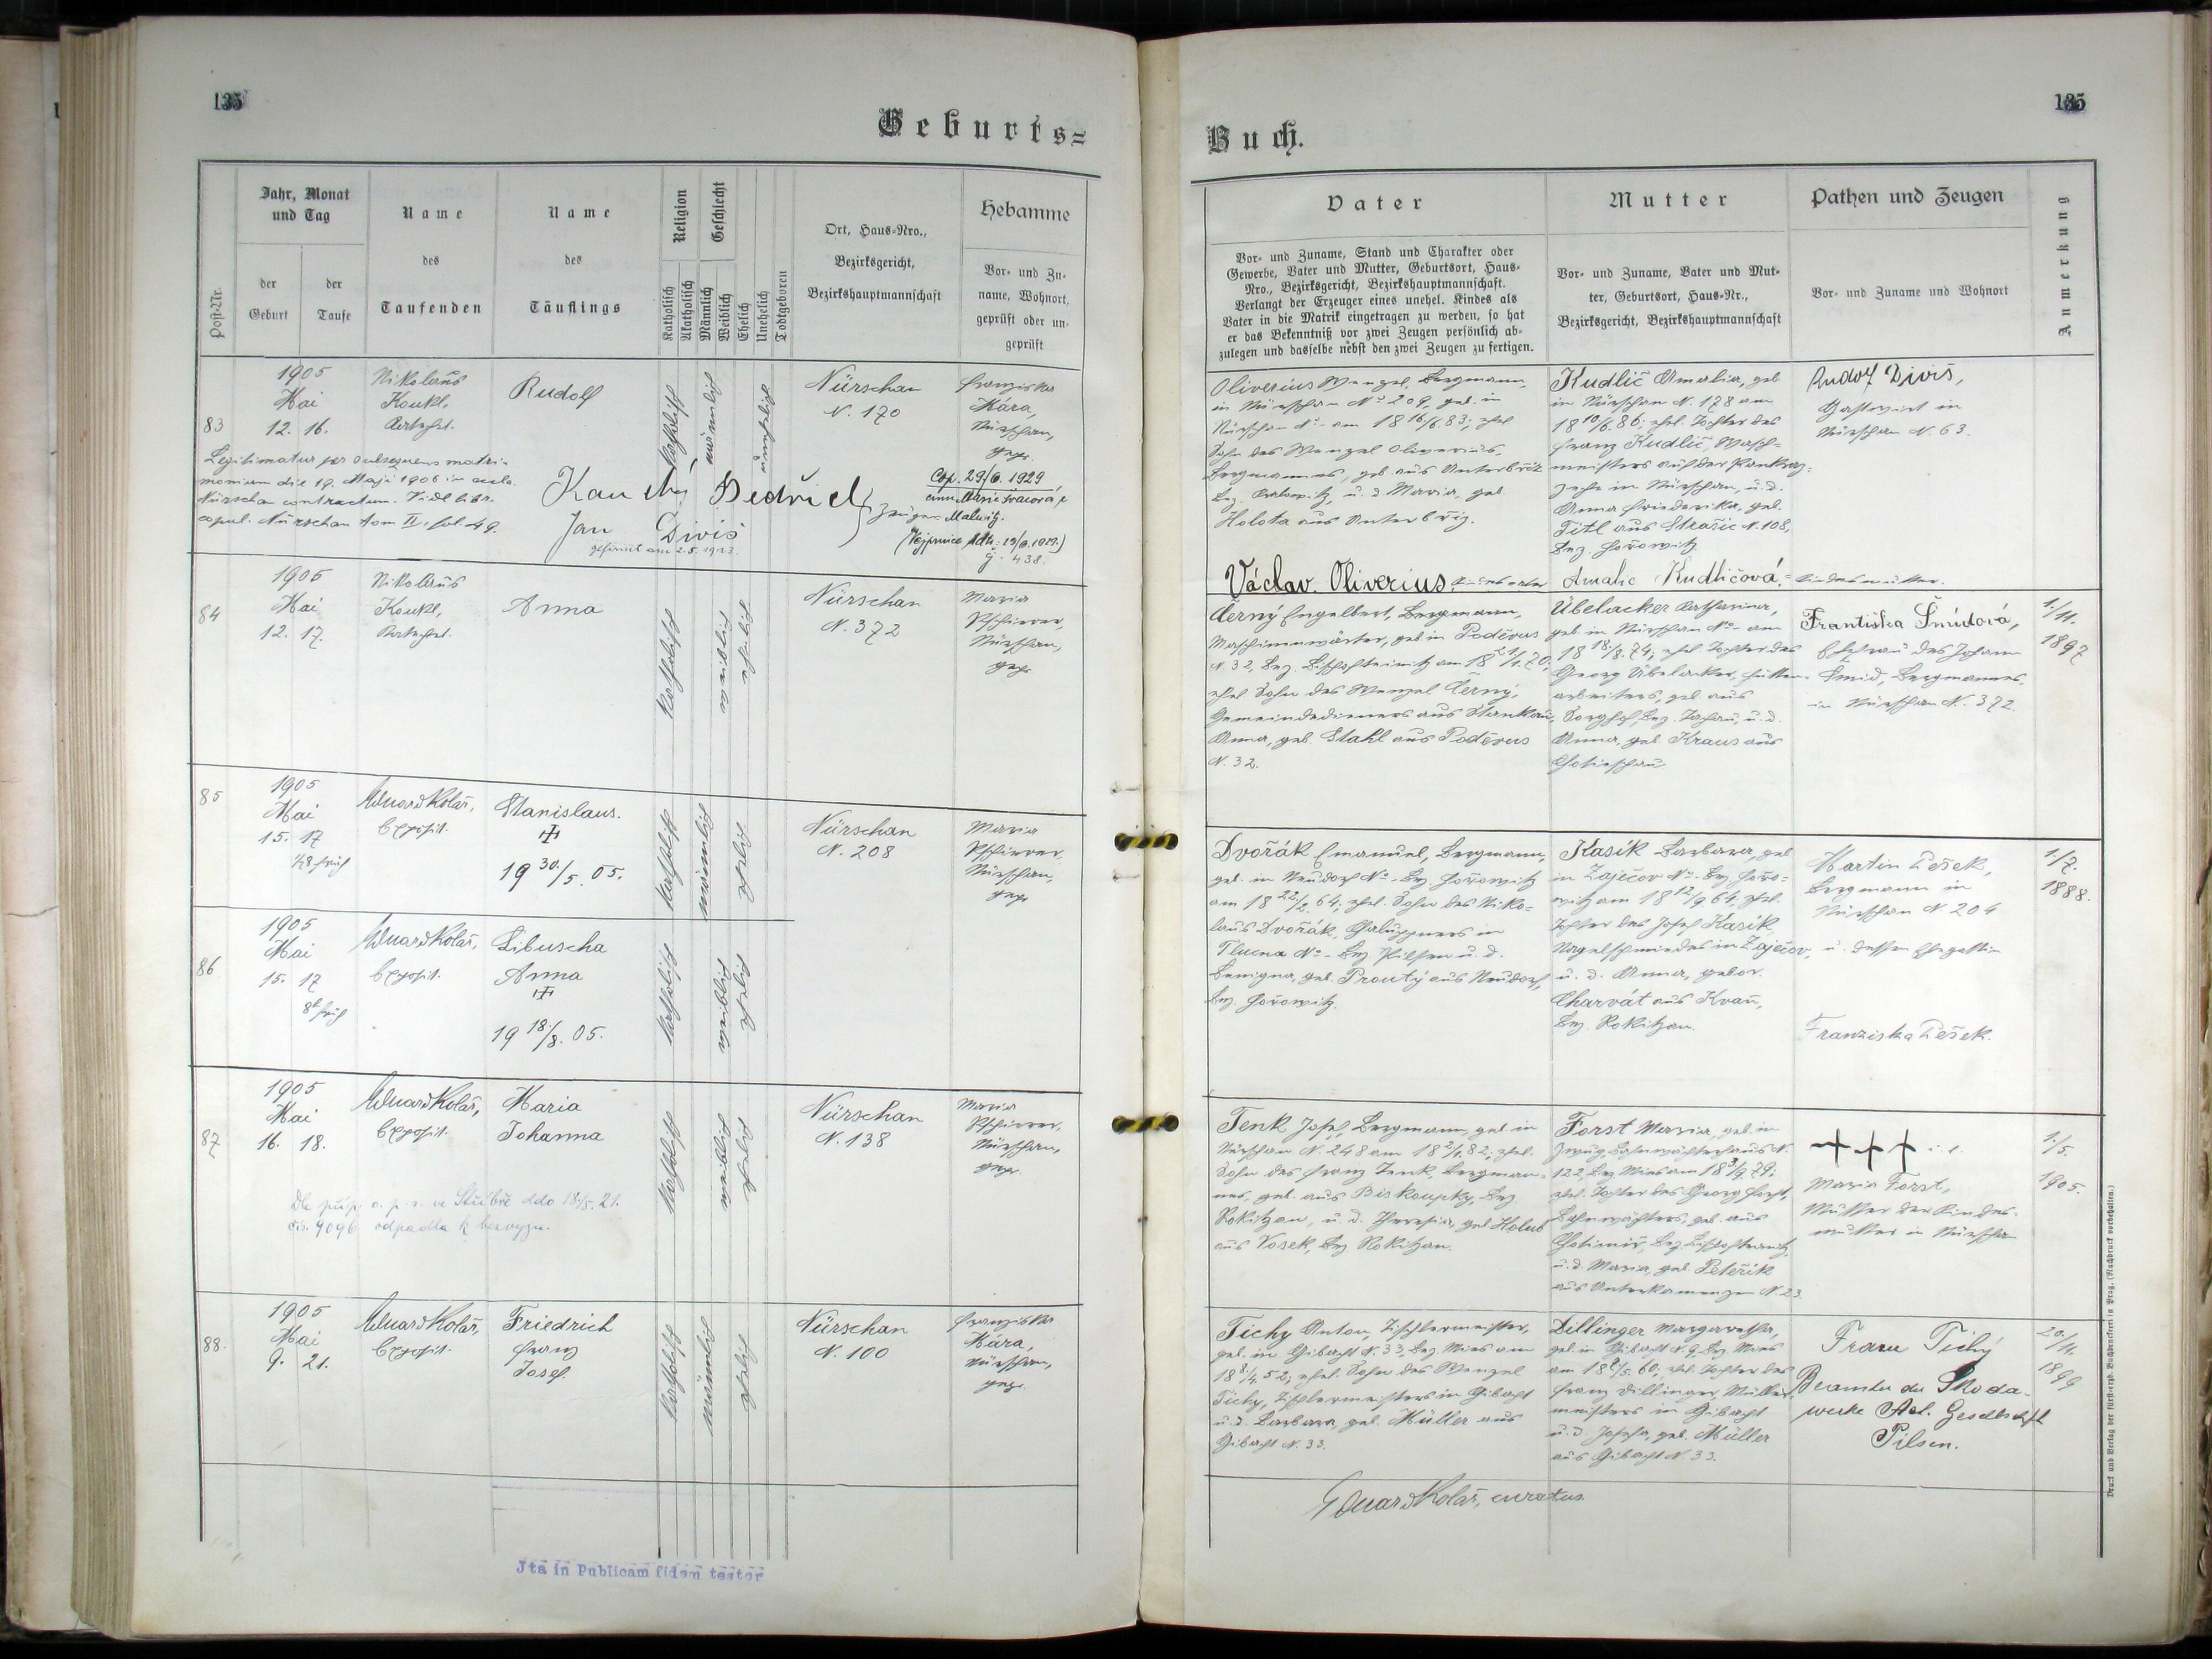 135
Geburts=
Post-Nr.
Jahr, Monat
und Tag
der
Geburt
der
Taufe
Name
des
Taufenden
Name
des
Täuflings
Religion
Katholisch
Akatholisch
Geschlecht
Männlich
Weiblich
Ehelich
Unehelich
Todtgeboren
Ort, Haus-Nro.,
Bezirksgericht,
Bezirkshauptmannschaft
Hebamme
Vor- und Zu-
name, Wohnort,
geprüft oder un-
geprüft
83
1905
Mai
12. 16.
Nikolaus
Koukl,
Katechet.
Rudolf
katholisch
männlich
Nürschan
N. 170
Franziska
Kára,
Nürschan,
gepr.
Legitimatur per subsequens matri-
monium die 19. Maji 1906 in eccle.
Nürschan contractum. Vide libr.
copul. Nürschan tom II, fol 49.
Bedřich
Jan Diviš
Zeugen
gefirmt am 2.5.1913.
Cop. 29/6. 1929
Malesitz.
84
1905
Mai
12. 17.
Nikolaus
Koukl,
Katechet.
Anna
katholisch
weiblich
ehelich
Nürschan
N. 372
Maria
Nürschan,
gepr.
85
1905
Mai
15. 17
1/28 früh
Eduard Kolář,
Exposit.
Stanislaus.
19 30./5. 05.
katholisch
männlich
ehelich
Nürschan
N. 208
Maria
Nürschan,
gepr.
86
1905
Mai
15. 17
8h früh
Eduard Kolář,
Exposit.
Libuscha
Anna
19 18./8. 05.
katholisch
weiblich
ehelich
87
1905
Mai
16. 18.
Eduard Kolář,
Exposit.
Maria
Johanna
katholisch
weiblich
ehelich
Nürschan
N. 138
Maria
Nürschan,
gepr.
ve Stříbře ddo 18/5. 21.
čís. 9096 odpadla k
88.
1905
Mai
9. 21.
Eduard Kolář,
Exposit.
Friedrich
Franz
Josef.
katholisch
männlich
ehelich
Nürschan
N. 100
Franziska
Kára,
Nürschan,
gepr.
Jta in Publicam fidem testor
135
Buch.
Vater
Vor- und Zuname, Stand und Charakter oder
Gewerbe, Vater und Mutter, Geburtsort, Haus-
Nro., Bezirksgericht, Bezirkshauptmannschaft.
Verlangt der Erzeuger eines unehel. Kindes als
Vater in die Matrik eingetragen zu werden, so hat
er das Bekenntniß vor zwei Zeugen persönlich ab-
zulegen und dasselbe nebst den zwei Zeugen zu fertigen.
Mutter
Vor- und Zuname, Vater und Mut-
ter, Geburtsort, Haus-Nr.,
Bezirksgericht, Bezirkshauptmannschaft
Pathen und Zeugen
Vor- und Zuname und Wohnort
Anmerkung
Oliverius Wenzel, Bergmann,
in Nürschan No 209, geb. in
Nürschan No - am 18 16/6. 83; ehel.
Sohn des Wenzel Oliverius,
Bergmannes, geb. aus Unterbříz
u. d. Maria, geb.
Holota aus Unterbřiz.
Václav Oliverius, Kindesvater
Kudlič Amalia, geb.
in Nürschan N. 178 am
18 10/6. 86; ehel. Tochter des
Franz Kudlič, Wasch-
meisters auf der Pankraz-
zeche in Nürschan, u. d.
Anna Friederika, geb.
Titl aus Strašic N. 108,
Bez. Hořowitz.
Amalie Kudličová, Kindesmutter.
Rudolf Diviš,
Gastwirt in
Nürschan N. 63.
Černý Engelbert, Bergmann,
Maschinenwärter, geb. in Poděvus
N 32, Bez. Bischofteinitz am
ehel. Sohn des Wenzel Černý,
Gemeindedieners aus Stankau,
Anna, geb. Stahl aus Poděvus
N. 32.
Übelacker Katharina,
geb. in Nürschan No - am
18 18./8. 74; ehel. Tochter des
Georg Übelacker, Hütten-
arbeiters, geb. aus
Sorghof, Bez. Tachau, u. d.
Anna, geb. Kraus aus
Chotieschau
Františka Šmídová,
Ehefrau des Johann
Šmíd, Bergmannes,
in Nürschan N. 372.
1./11.
1897
Dvořák Emanuel, Bergmann,
geb. in Neudorf No - Bez. Hořowitz
am 18 22./2. 64; ehel. Sohn des Niko-
laus Dvořák, Chaluppners in
Tlucna No - Bez. Pilsen u. d.
Benigna, geb. Prouty aus Neudorf,
Bez. Hořowitz.
Kasík Barbara, geb.
in Zaječov No - Bez. Hořo-
witz am 18 12/9 64; ehel.
Tochter des Josef Kasík
Nagelschmiedes in Zaječov,
u. d. Anna, gebor.
Charvát aus Kvaň,
Bez. Rokitzan.
Martin Pešek,
Bergmann in
Nürschan N. 204
u. dessen Ehegattin
Franziska Pešek.
1./7.
1888.
Tenk Josef, Bergmann, geb. in
Nürschan N. 248 am 18 2/1. 82; ehel.
Sohn des Franz Tenk, Bergman-
nes, geb. aus Biskoupky, Bez.
Rokitzan, u. d. Theresia, geb. Holub
aus Vosek, Bez. Rokitzan.
Forst Maria, geb. in
122, Bez. Mies am 18 3/9. 79;
ehel. Tochter des Georg Forst,
Bahnwächters, geb. aus
Chotimiř, Bez. Bischofteinitz,
u. d. Maria, geb. Peteřík
aus Unterkamenzen N. 23.
+++ i. e.
Maria Forst,
Mutter der Kindes-
mutter in Nürschan
1./5.
1905.
Tichy Anton, Tischlermeister,
geb. in Gibacht N. 33, Bez. Mies am
18 8/4. 52; ehel. Sohn des Wenzel
Tichy, Tischlermeisters in Gibacht
u. d. Barbara, geb. Müller aus
Gibacht N. 33.
Dillinger Margaretha,
geb. in Gibacht N. 9, Bez. Mies
am 18 8/5. 60; ehel. Tochter des
Franz Dillinger, Müller-
meisters in Gibacht
u. d. Josefa, geb. Müller
aus Gibacht N. 33.
Franz Tichý
Beamter der Skoda-
werke Act. Gesellschaft
Pilsen.
20./11.
1899
Eduard Kolář, curatus.
Druck und Verlag der fürst-erzb. Buchdruckerei in Prag. (Nachdruck vorbehalten.)